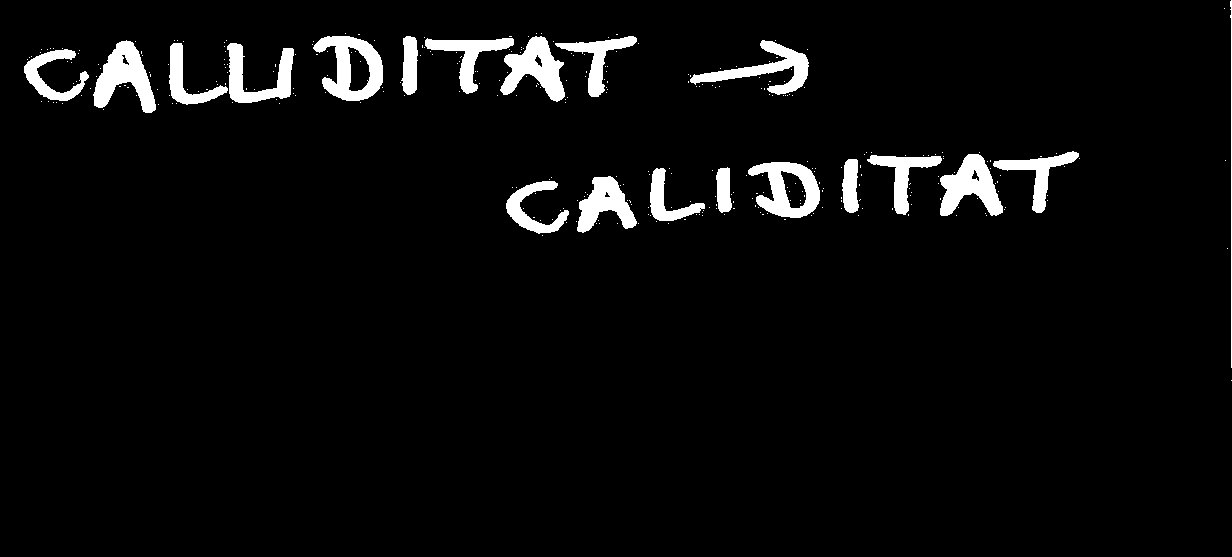 CALLIDITAT →
CALIDITAT